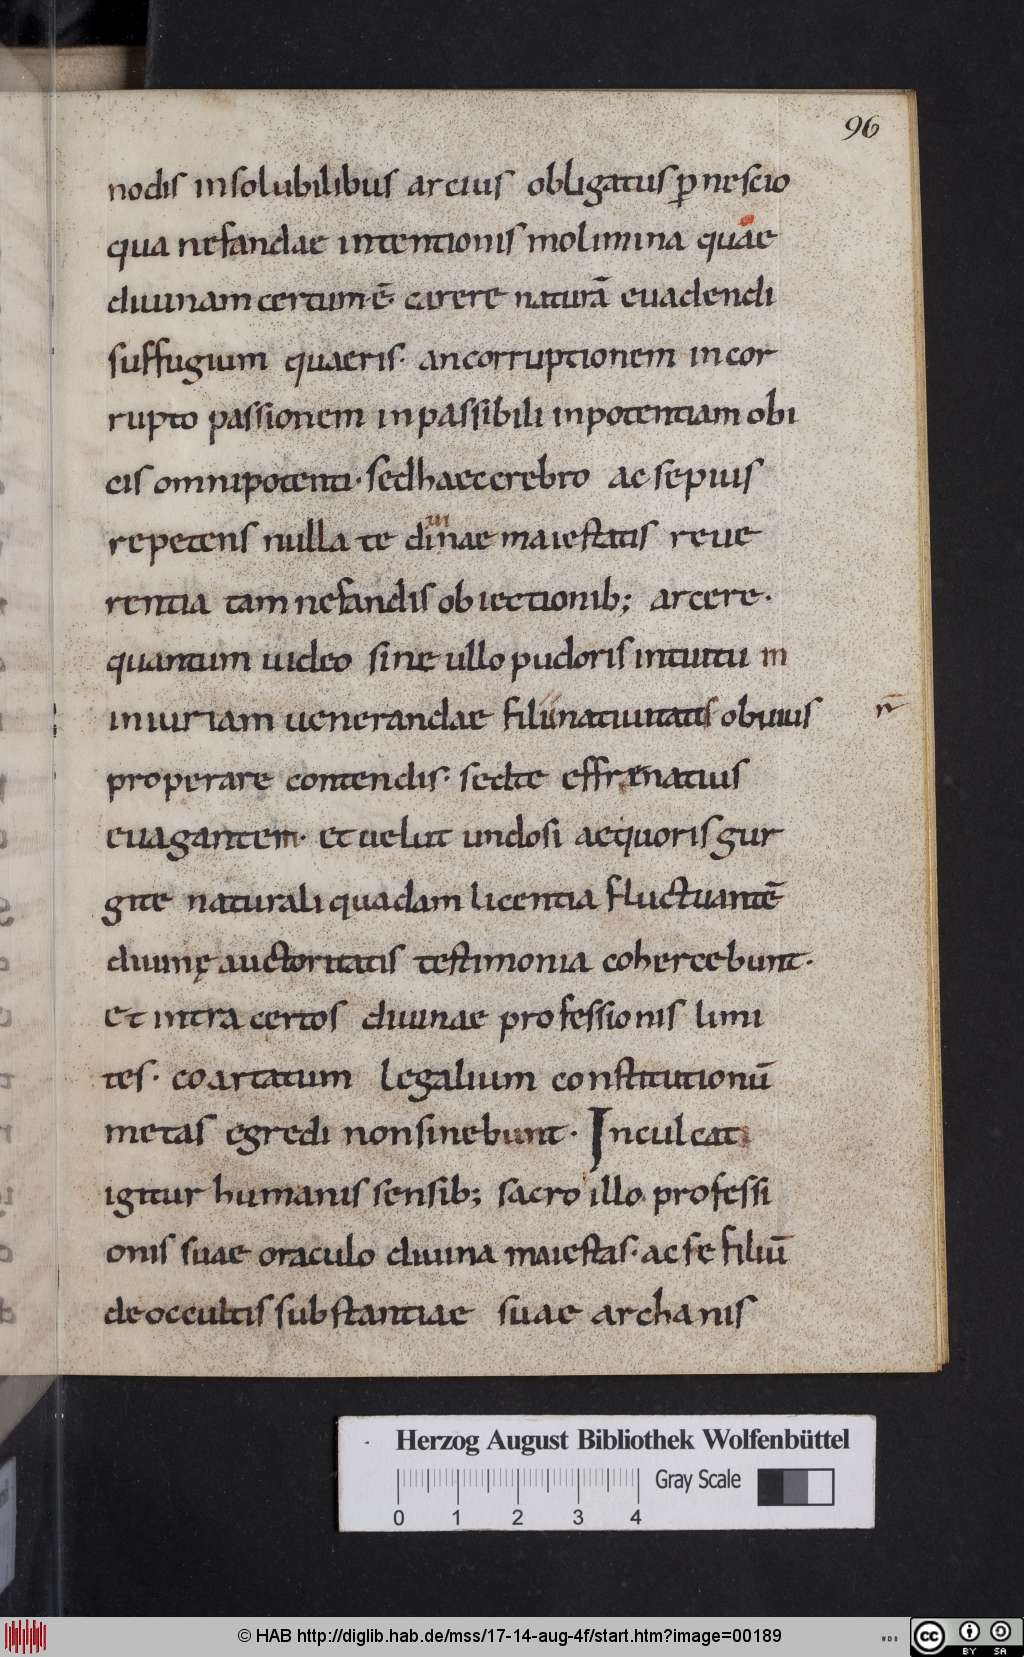 96
nodis insolubilibus arcius obligatus ꝑnescio
qua nefandae intentionis molimina quae
diuinam certum ē· carere naturā euadendi
suffugium quaeris· an corruptionem incor
rupto passionem inpassibili inpotentiam obi
cis omnipotenti· sed haec crebro ac sepius
repetens nulla te diuinae maiestatis reue
rentia tam nefandis obiectionib; arcere·
quantum uideo sine ullo pudoris intuitu in
iniuriam uenerandae filii natiuitatis obuius
properare contendis· sed te effrenatius
euagantem· et uelut undosi aequoris gur
gite naturali quadam licentia fluctuantē
diuinę auctoritatis testimonia cohercebunt·
et intra certos diuinae professionis limi
tes· coartatum legalium constitutionū
metas egredi non sinebunt· Inculcat
igitur humanis sensib; sacro illo professi
onis suae oraculo diuina maiestas· ac se filiū
de occultis substantiae suae archanis
Herzog August Bibliothek Wolfenbüttel
Gray Scale
0 1 2 3 4
© HAB http://diglib.hab.de/mss/17-14-aug-4f/start.htm?image=00189
cc BY SA